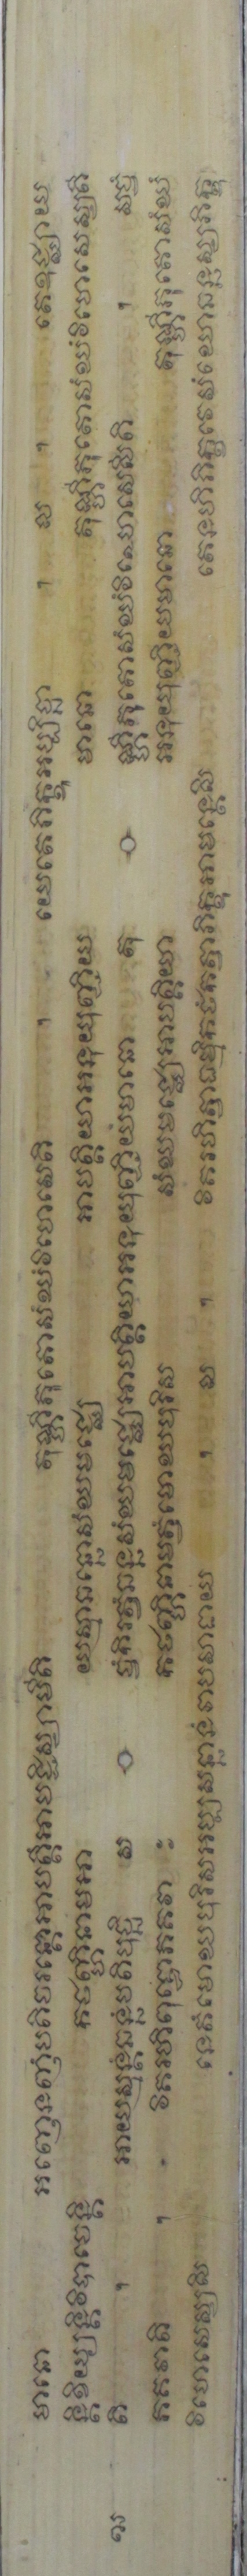 មានោ អញ្ញេនញំបតិចរន្តោអាបត្តឹអាបជ្ជិស្សាមីតិ តុណ្ហីភុតោសំឃំវិហេសេតិ ។ យេតេភិក្ខុអប្បិច្ឆា ។ ល ។ តេឧជ្ឈាយ
ន្តិខិយ្យន្តិវិបាចេន្តិ កថញ្ហិនាមអា យស្មាឆន្នោសំឃមជ្ឈេ អាបត្តិយាអនុយុញ្ជិយ មានោ តុណ្ហីភុតោសំឃំវិហេសេស្សតី
តិ ។ អាយស្មន្តំឆន្នំបតិបុច្ឆិ ស ច្ចំកិរត្វំឆន្នសំឃមជ្ឈេអាបត្តិយាអនុយុញ្ជិយមានោ តុ ណ្ហីភុតោសំឃំវិហេសេសីតិ ។ សច្ចំ
ភគវាតិ ។ វិគរហិពុទ្ធោភគវា ះ កថញ្ហិនាមត្វំមោឃបុរិស សំឃមជ្ឈេអាបត្តិយា អនុយុញ្ជិយមានោ តុណ្ហីភុតោសំឃំ
វិហេសេស្សសិ នេតំមោឃបុរិសអប្បសន្នានំវាបសាទាយ ។ ល ។ វិគរហិត្វាធម្មិកថំកត្វាភិក្ខុអាមន្តេសិ តេនហិភិក្ខវេសំឃោឆន្នស្សភិក្ខុ